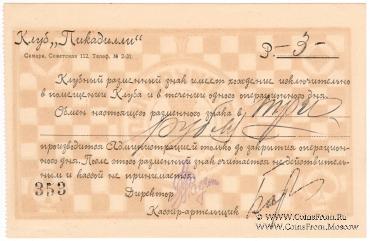 Клуб „Пикадилли“
Самара, Советская 112, Телеф. № 2-31.
Р. — 3 —
Клубный разменный знак имеет хождение исключительно
в помещении Клуба и в течении одного операционного дня.
Обмен настоящего разменного знака в три
рубля
производится Администрацией только до закрытия операцион-
ного дня. После этого разменный знак считается недействитель-
ным и кассой не принимается.
353
Директор
Кассир-артельщик
© www.CoinsFrom.Ru